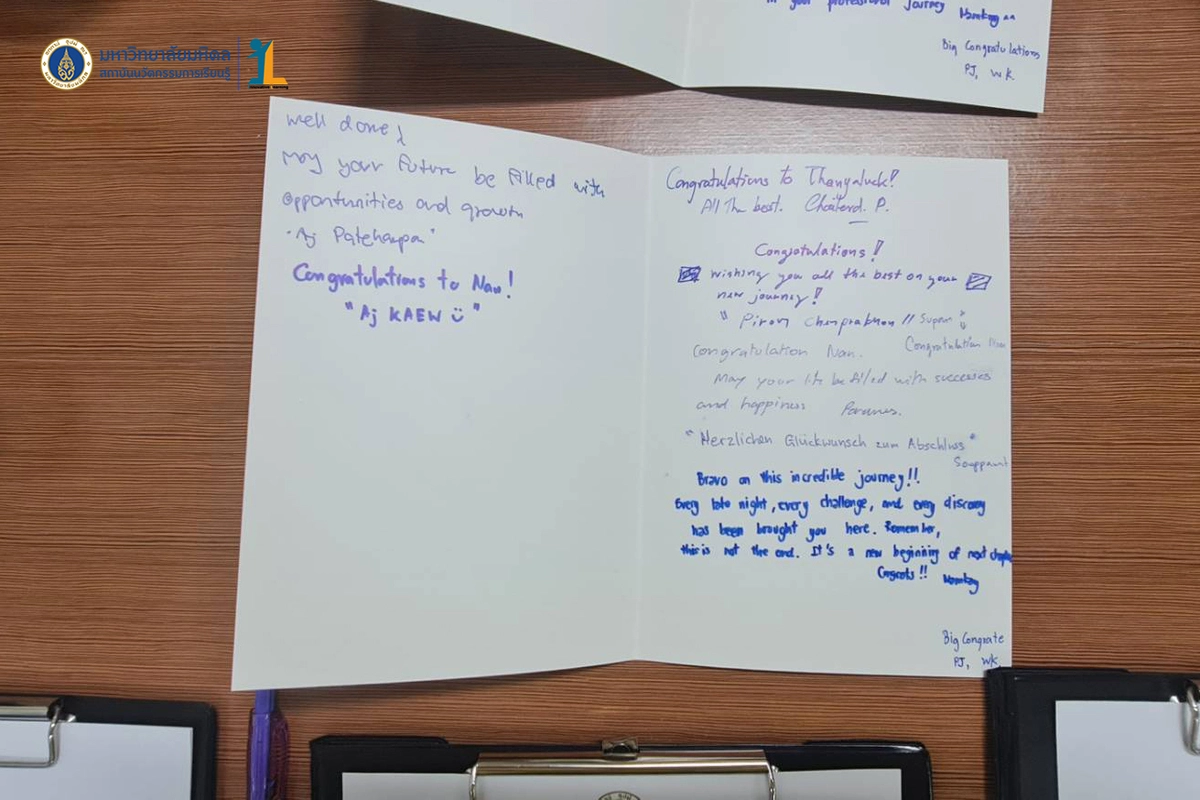 มหาวิทยาลัยมหิดล
สถาบันนวัตกรรมการเรียนรู้
in your professional journey
Big Congratulations
PJ, WK
Well done!
May your future be filled with
opportunities and growth
"Aj
Congratulations to Nan!
"Aj KAEW "
Congratulations to Thanyaluck!
All The best. P.
Congratulations!
Wishing you all the best on your
new journey!
Congratulation Nan
Congratulation Nan.
May your life be filled with successes
and happiness
"Herzlichen Glückwunsch zum Abschluss"
Bravo on this incredible journey!!
Every late night, every challenge, and every discovery
has been brought you here. Remember,
this is not the end. It's a new beginning of next
Congrats!!
Big Congrats
PJ, WK